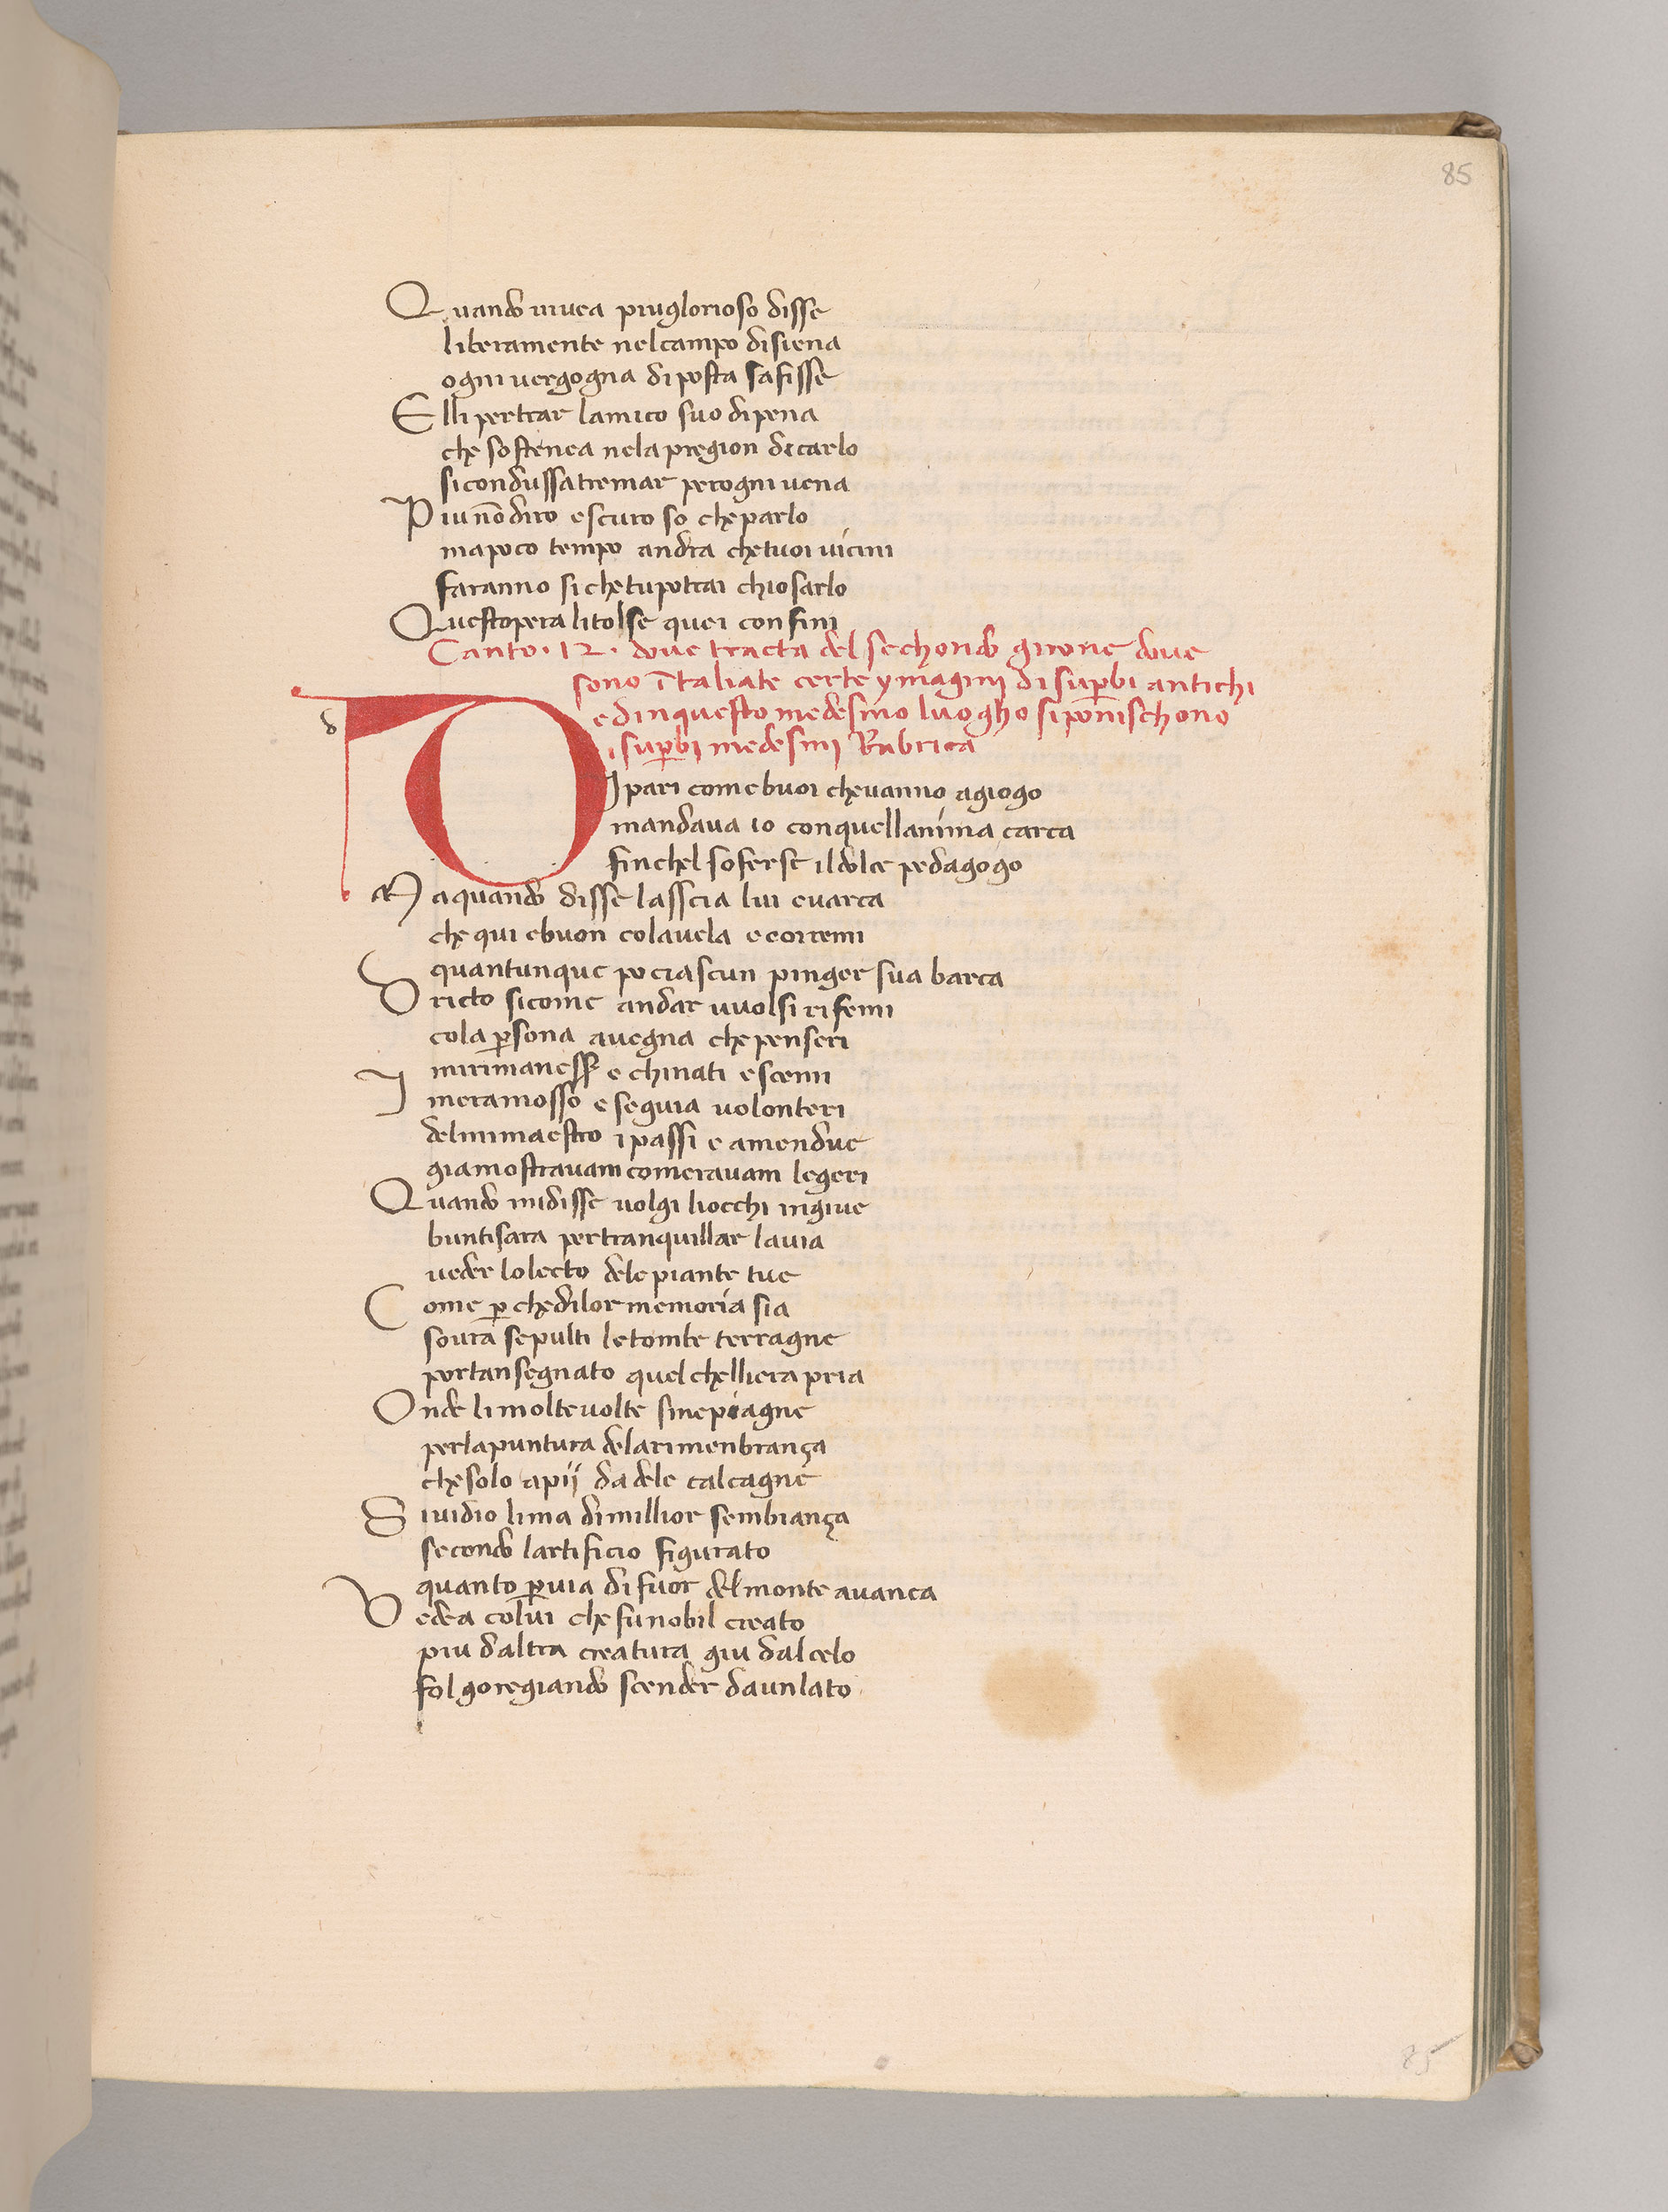 85
Quando uiuea piuglorioso disse
liberamente nelcampo disiena
ogni uergogna diposta safisse
Elli pertrar lamico suo dipena
che sostenea nela pregion decarlo
sicondussatremar perogni uena
Piu nō diro escuro so cheparlo
mapoco tempo andra chetuoi uicini
faranno sichetupotrai chiosarlo
Questopera litolse quei confini
Canto · 12 · doue tracta del sechondo girone doue
sono ītaliate certe ymagini di suꝑbi antichi
edinquesto medesmo luogho siponischono
isuꝑbi medesmi Rubrica
d
DI pari comebuoi cheuanno agiogo
mandaua io conquellanima carca
finchel soferse ildolce pedagogo
Maquando disse lasscia lui euarca
che qui ebuon colauela ecoiremi
quantunque pociascun pinger sua barca
Dricto sicome andar uuolsi rifemi
cola ꝑsona auegna chepenseri
mirimanesser e chinati escemi
Imeramosso eseguia uolonteri
delmimaestro ipassi e amendue
giamostrauam comerauam legeri
Quando midisse uolgi liocchi ingiue
buntisara pertranquillar lauia
ueder lolecto dele piante tue
Come ꝑ chedilor memoria sia
soura sepulti letombe terragne
portansegnato quel chelliera pria
Onde li moltevolte sinepiagne
perlapuntura delarimenbrança
chesolo apij dadele calcagne
Siuidio lima dimillior sembiança
secondo lartificio figurato
quanto ꝑuia di fuor del monte auanca
Vedea colui che funobil creato
piu daltra creatura giu dalcelo
folgoregiando scender daunlato
85